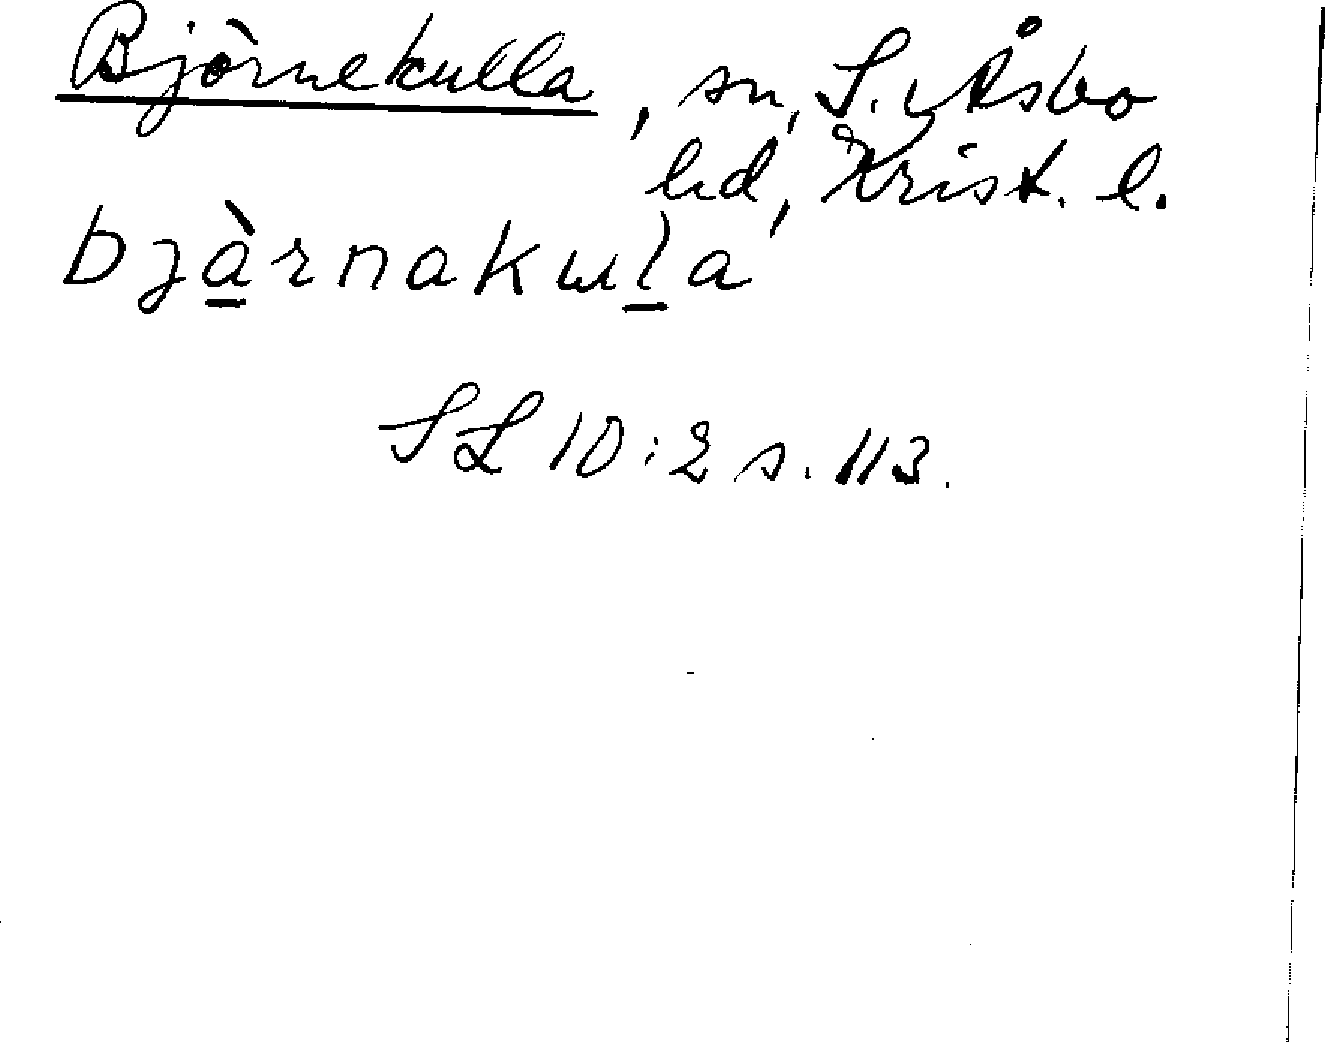 Björnekulla, sn, S. Åsbo
hd, Krist. l.
bjàrnakula
SL 10:2 s. 113.